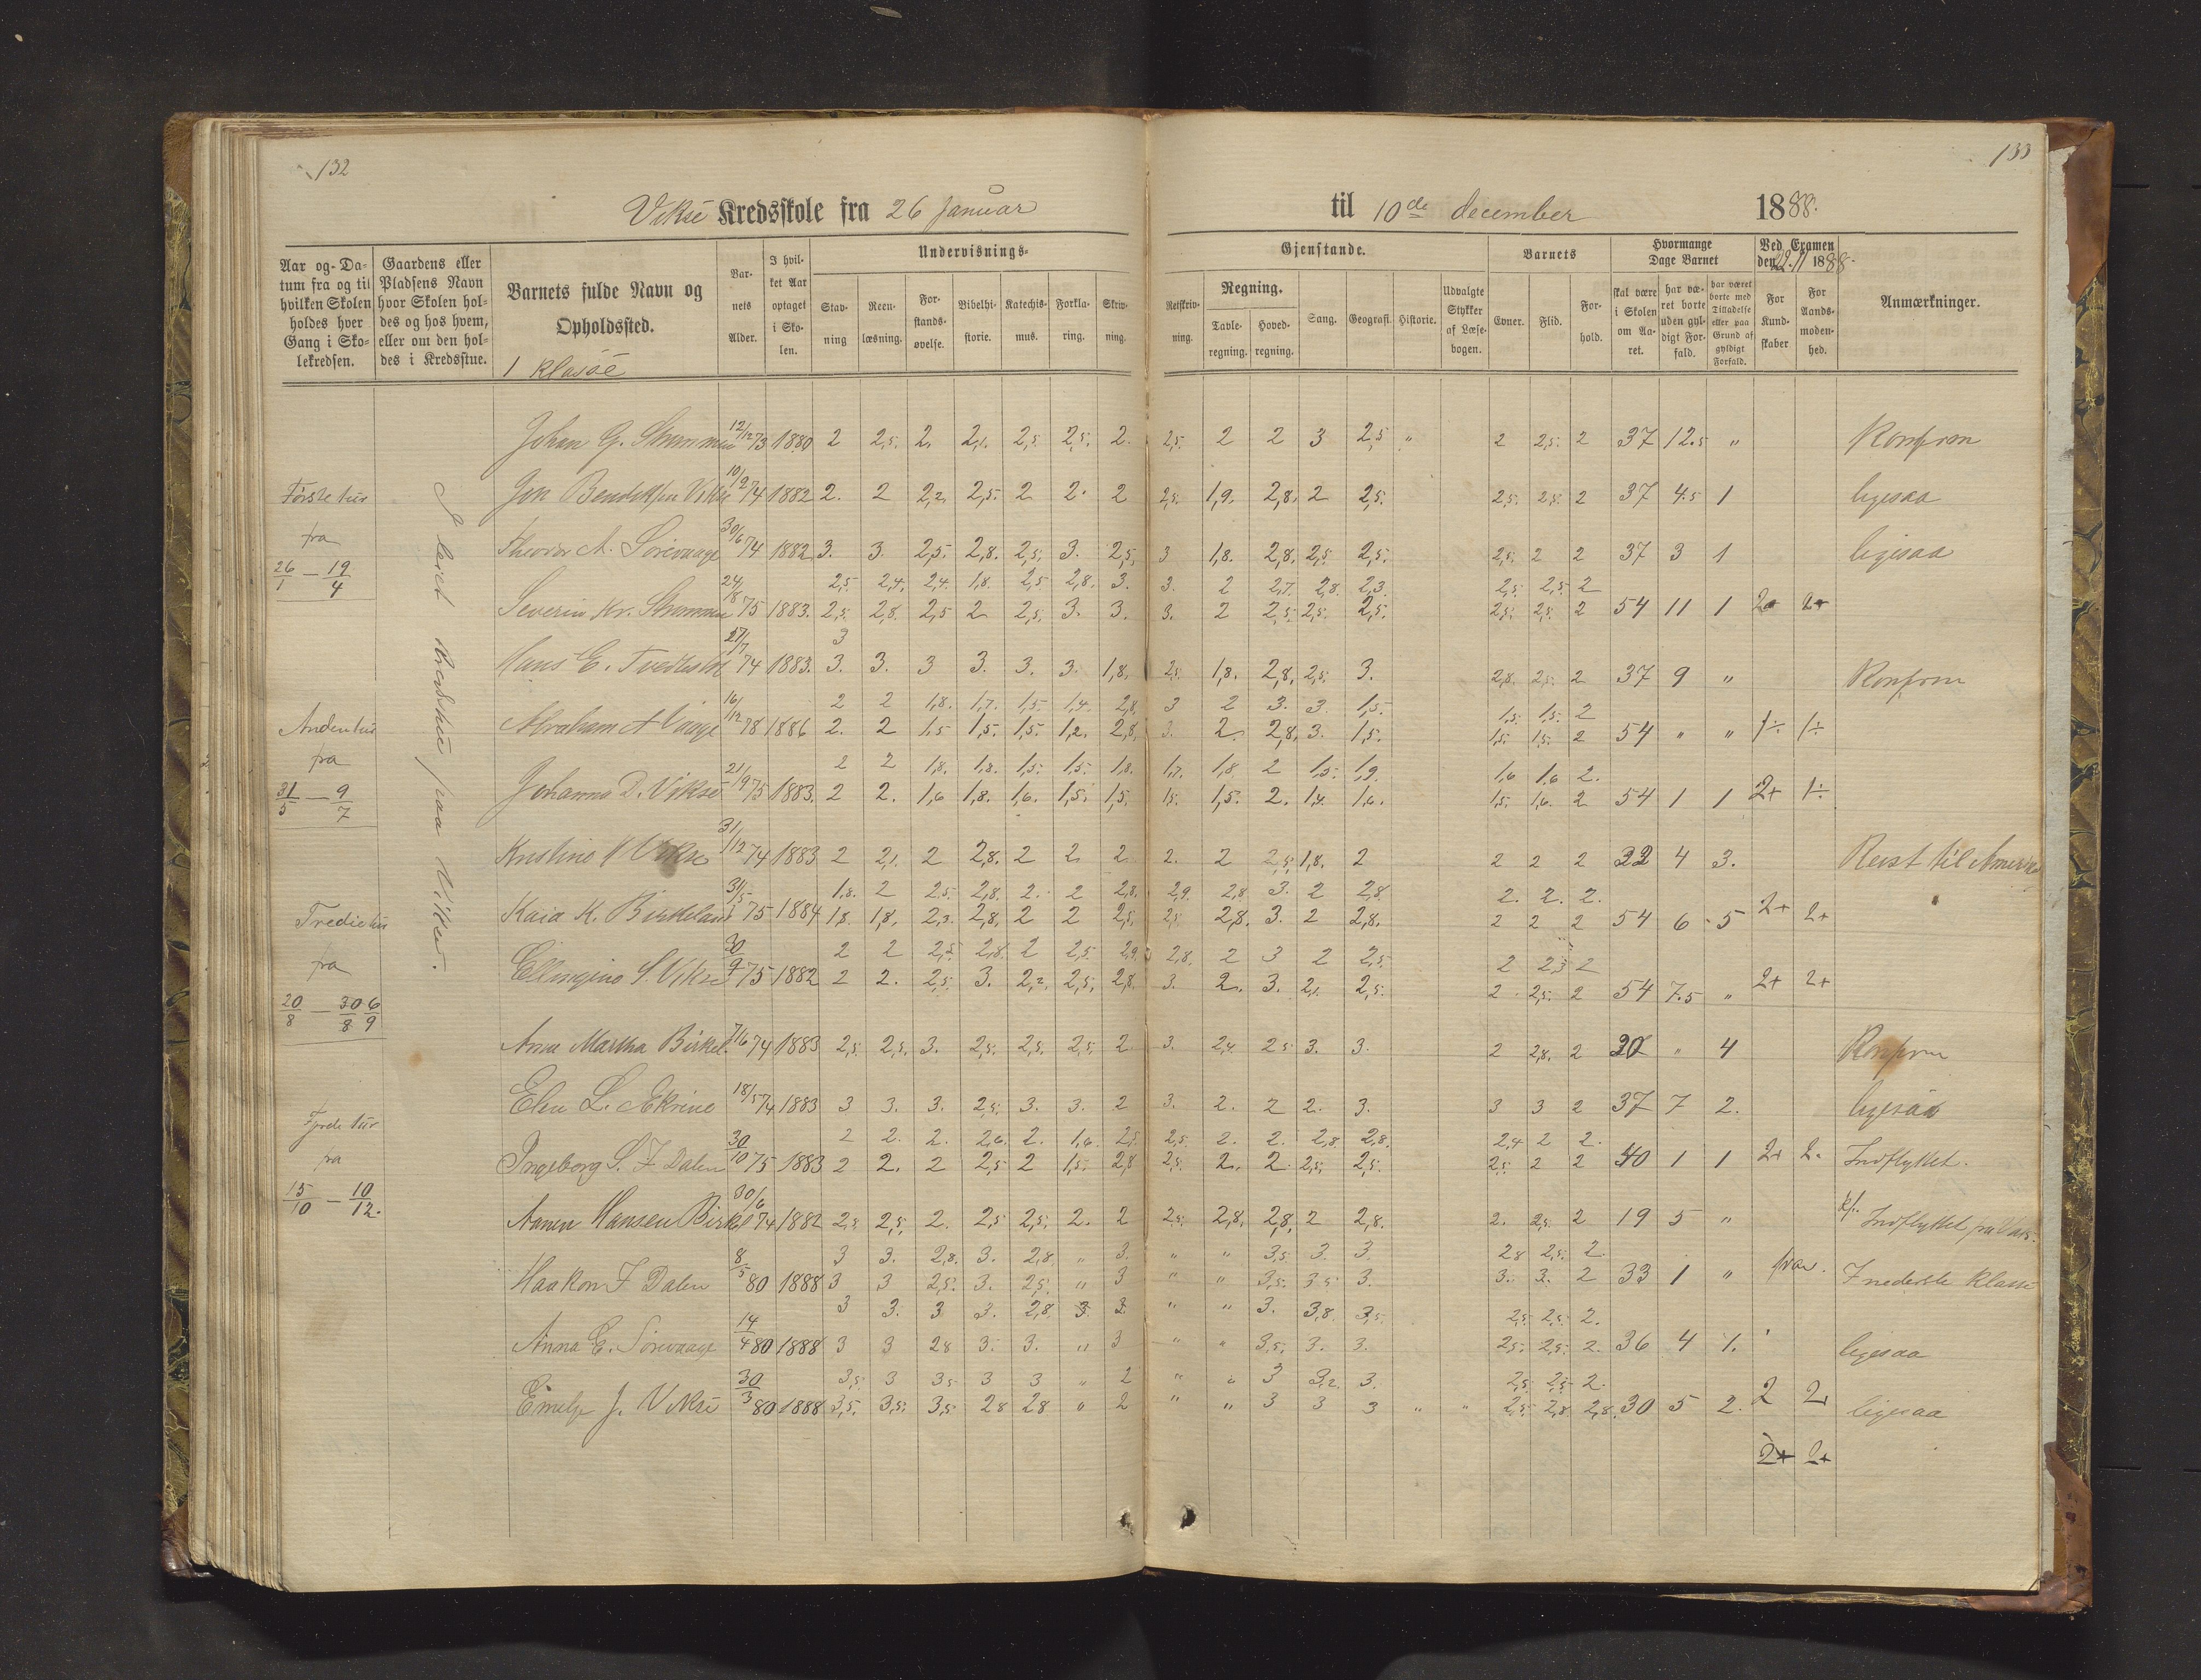 132
133
Vikse Kredsskole fra 26 Januar til 10de december 1888.
Aar og Datum fra og til hvilken Skolen holdes hver Gang i Skolekredsen.
Gaardens eller Pladsens Navn hvor Skolen holdes og hos hvem, eller om den holdes i Kredsstue.
Barnets fulde Navn og Opholdssted.
1 Klasse
Barnets Alder.
I hvilket Aar optaget i Skolen.
Undervisnings-
Gjenstande.
Stavning
Reenlæsning.
Forstandsøvelse.
Bibelhistorie.
Katechismus.
Forklaring.
Skrivning.
Retskrivning.
Regning.
Tavleregning.
Hovedregning.
Sang.
Geografi.
Historie.
Udvalgte Stykker af Læsebogen.
Barnets
Evner.
Flid.
Forhold.
Hvormange Dage Barnet
skal være i Skolen om Aaret.
har været borte uden gyldigt Forfald.
har været borte med Tilladelse eller paa Grund af gyldigt Forfald.
Ved Examen den 22.11 1888.
For Kundskaber
For Aandsmodenhed.
Anmærkninger.
Første tur
fra
26/1 — 19/4
Anden tur
fra
31/5 — 9/7
Tredie tur
fra
20/8 — 30/8 6/9
Fjerde tur
fra
15/10 — 10/12.
paa Vikse.
Johan G. Strømmen 12/12 73 1880 2 2,5. 2. 2,1. 2,5 2,5. 2. 2,5. 2 2 3 2,5 " 2 2,5. 2 37 12.5 " Konfirm
Jon Bendiksen Vikse 10/2 74 1882 2. 2 2,2. 2,5. 2 2. 2 2,5. 1,9. 2,8. 2 2,5. 2,5. 2,5. 2 37 4.5 1 ligesaa
Theodor A. Sørevaage 30/6 74 1882 3. 3. 2,5. 2,8. 2,5. 3. 2,5. 3 1,8. 2,8. 2,5. 2,5. 2,5. 2 2 37 3 1 ligesaa
2,5. 2,4. 2,4. 1,8. 2,5 2,8. 3. 3. 2 2,7. 2,8. 2,3. 2,5. 2,5. 2
Severin Kr. Strømmen 24/8 75 1883. 2,5. 2,8. 2,5 2 2,5. 3. 3. 3. 2 2,5. 2,5. 2,5. 2,5. 2,5. 2 54 11 1 2+ 2+
3
Hans E. Tvedteslet 27/7 74 1883. 3. 3. 3 3. 3. 3. 1,8. 2,5. 1,8. 2,8. 2,5. 3. 2,8. 2,5. 2 37 9 " Konfirm
2 2 1,8. 1,7. 1,5. 1,4. 2,8. 3 2 3. 3. 1,5. 1,5. 1,5. 2
Abraham A Vaage 16/12 78 1886 2. 2 1,5 1,5. 1,5. 1,2. 2,8. 3. 2. 2,8. 3. 1,5. 1,5. 1,5. 2 54 " " 1÷ 1÷
2 2 1,8. 1,8. 1,5. 1,5. 1,8. 1,7. 1,8 2 1,5. 1,9. 1,6 1,6 2.
Johanna D. Vikse 21/9 75 1883. 2 2. 1,6 1,8. 1,6. 1,5. 1,5. 1,5. 1,5. 2. 1,4. 1,6. 1,5. 1,6. 2 54 1 1 2+ 1÷
Kristine Vikse 31/12 74 1883 2 2,1. 2 2,8. 2 2. 2 2. 2 2,5. 1,8. 2 2 2 2 22 4 3. Reist til Amerika
1,8. 2 2,5. 2,8. 2. 2 2,8. 2,9 2,8 3. 2 2,8 2. 2. 2.
Kaia K. Birkeland 31/5 75 1884 1,8. 1,8. 2,3. 2,8. 2 2 2,5. 2,5. 2,8. 3. 2 2,8. 2 2 2 54 6 5 2+ 2+
2 2 2,5. 2,8. 2 2,5. 2,9. 2,8. 2 3 2 2,5. 2 2,3 2
Ellingine S. Vikse 30/9 75 1882 2 2. 2,5. 3. 2,2. 2,5. 2,8. 3. 2. 3. 2,1. 2,5. 2 2,5. 2 54 7.5 " 2+ 2+
Anna Martha Birkel. 7/6 74 1883 2,5. 2,5. 3. 2,5. 2,5. 2,5. 2 3. 2,4. 2,5 3. 3. 2 2,8. 2 30 " 4 Konfirm
Elen L. Ekrene 18/5 74 1883 3 3. 3. 2,5. 3. 3. 2 3. 2. 2 2. 3. 3 3 2 37 7 2. ligesaa
2 2. 2. 2,6. 2. 1,6. 2,5. 2,5. 2. 2. 2,8. 2,8. 2,4 2 2.
Ingeborg S. F Dalen 30/10 75 1883 2 2. 2 2,5 2 1,5. 2,8 2,5. 2. 2 2,5. 2,5. 2,5. 2 2 40 1 1 2+ 2. Indflyttet.
Hansen Birkel 30/6 74 1882 2,5. 2,5. 2. 2,5 2,5. 2. 2 2,5. 2,8. 2,8. 2 2,8. 2. 2,5. 2 19 5 " Indflyttet
3 3. 2,8. 3. 2,8. " 3. " " 3,5. 3. 3. 2,8 2,5. 2.
Haakon F Dalen 8/5 80 1888 3 3 2,5. 3. 2,5. " 3 " " 3,5. 3,5. 3. 3. 3. 2 33 1 " I nederste Klasse
3 3. 3 3. 2,8. 3. 3 " " 3. 3,8. 3,5. 2,5. 2,5. 2.
Anna E. Sørevaage 14/4 80 1888 3 3 2,8 3. 3. " 3 " " 3,5. 3. 3. 2,5. 2,5. 2. 36 4 1. ligesaa
3,5. 3 3,5 3 3 " 2 " " 3 3,2. 3. 2,5. 2,5. 2.
Emelje J. Vikse 30/3 80 1888 3,5. 3,5. 3,5 2,8 2,8 " 2 " " 3 3 3 " " 2,5. 2,8. 2,8. 30 5 2. 2 2+ ligesaa
2+ 2+